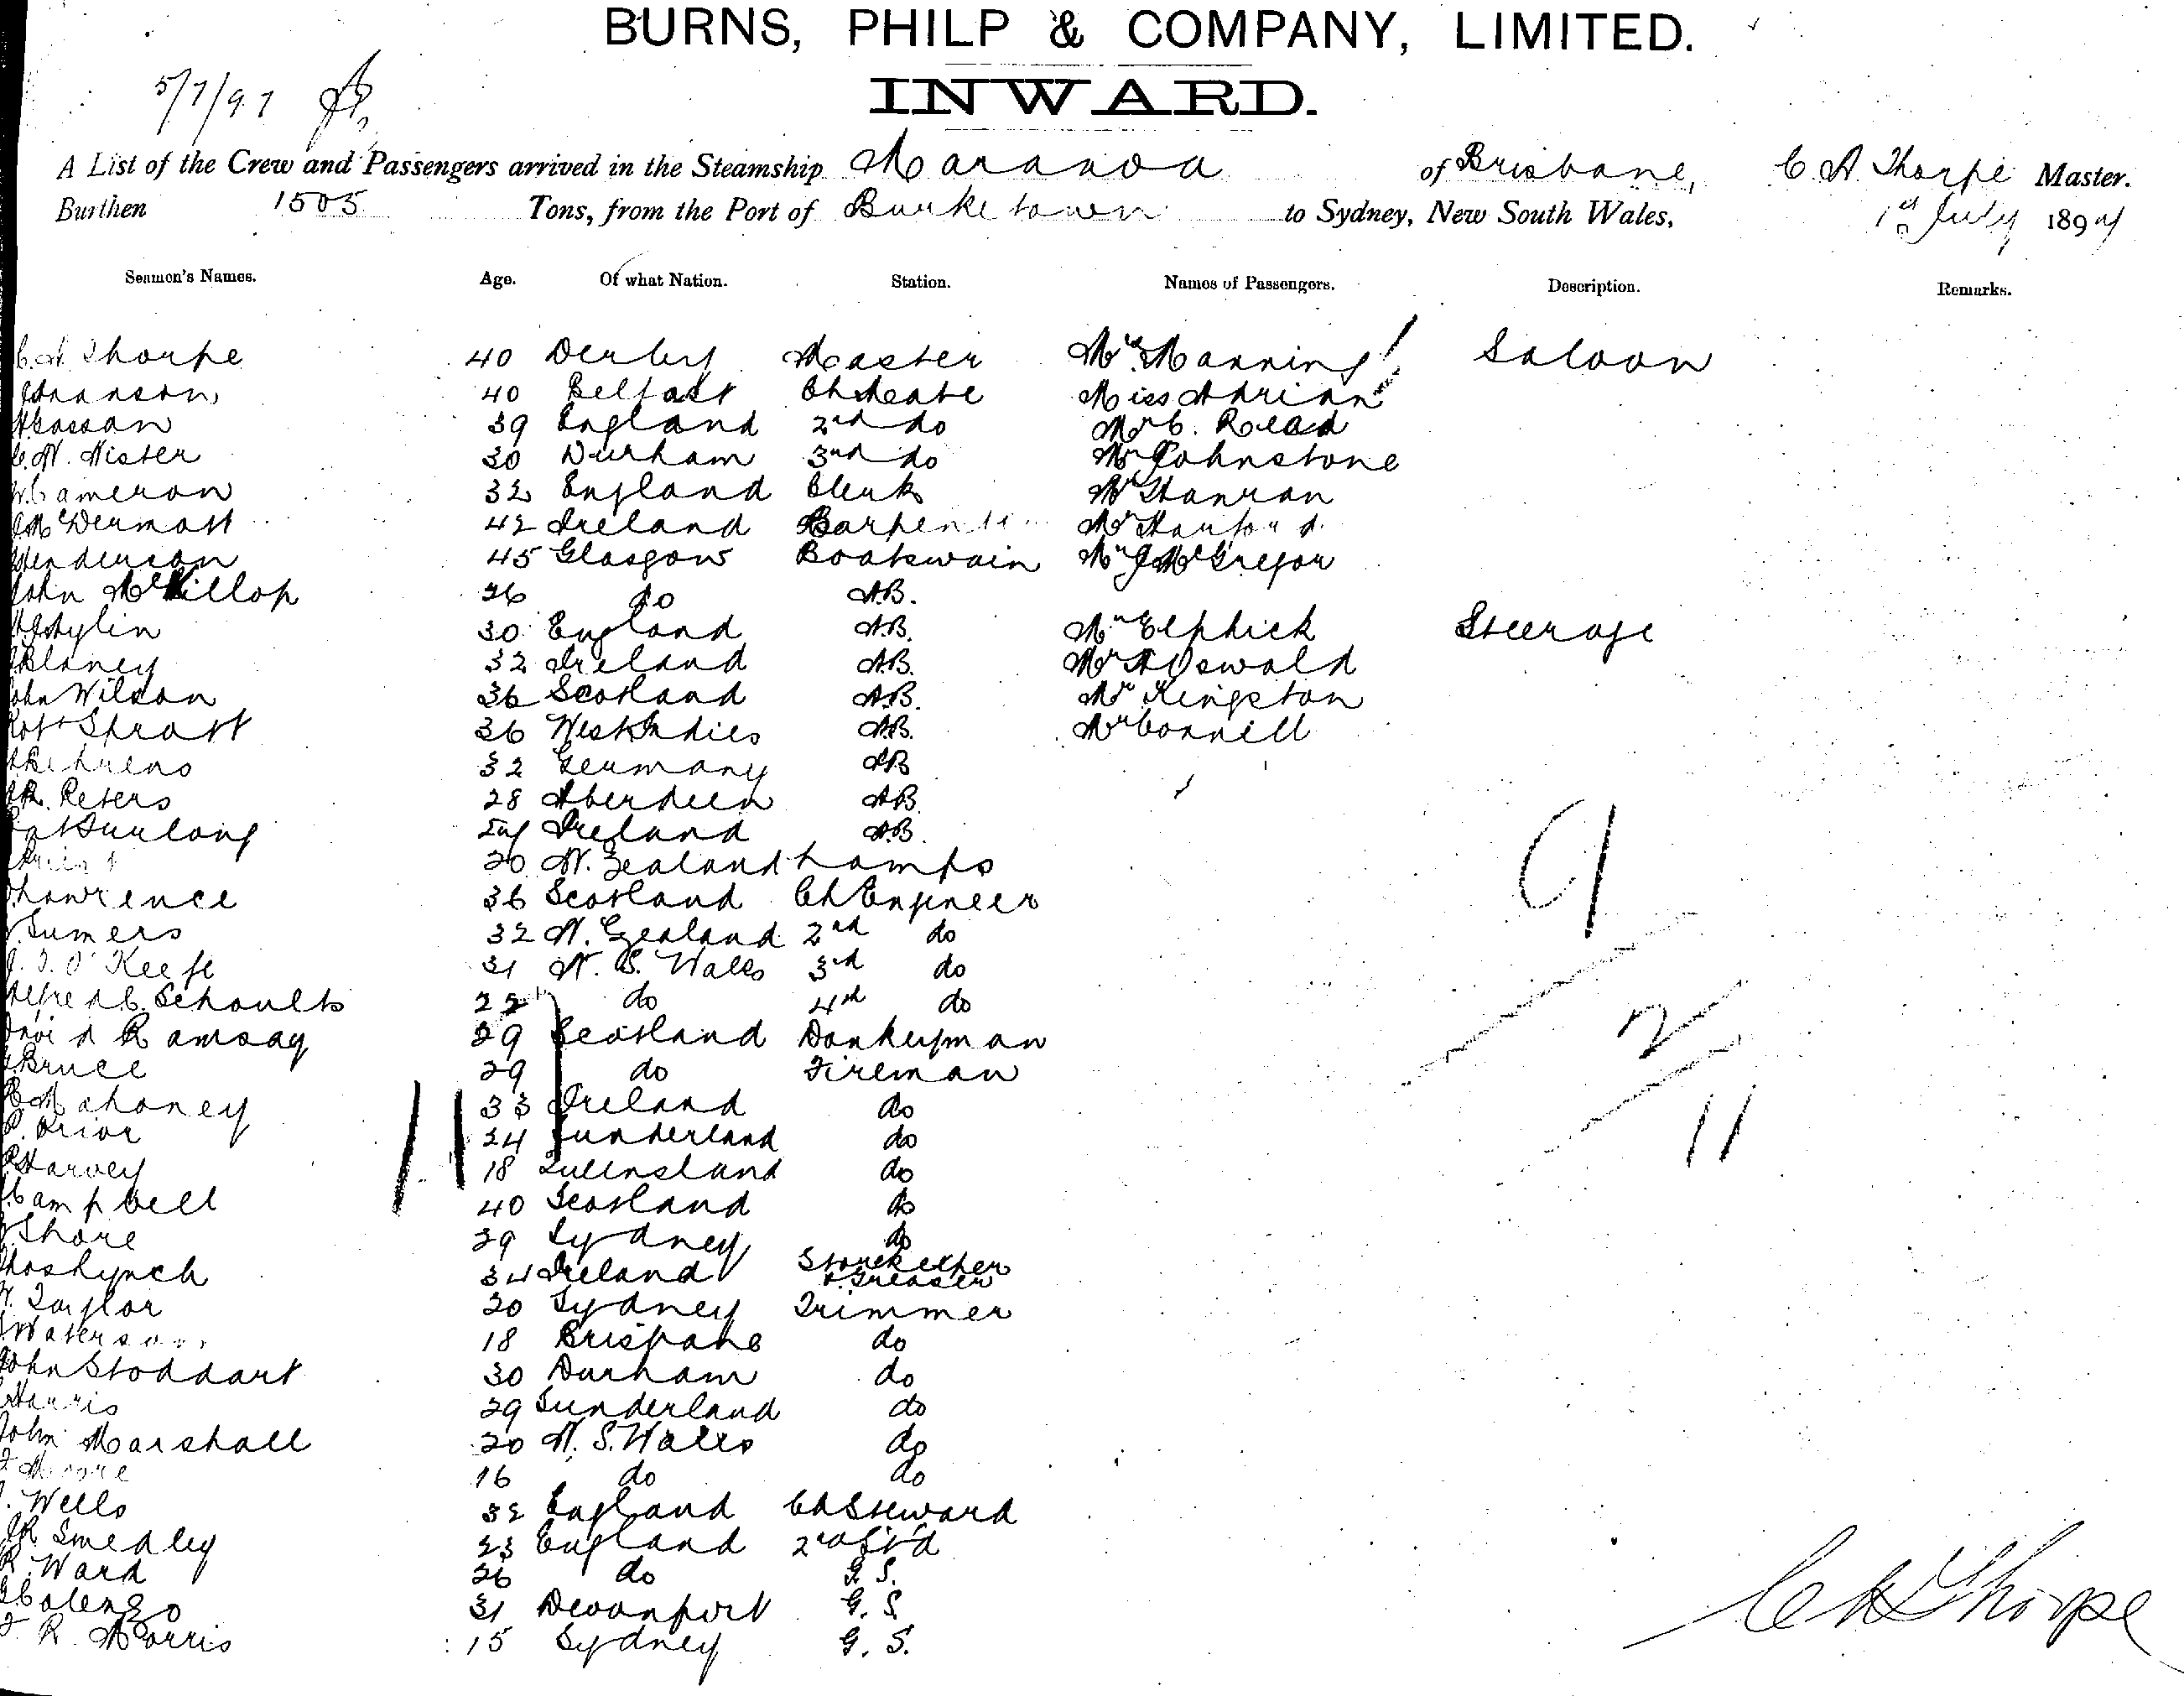 BURNS, PHILP & COMPANY, LIMITED.
INWARD.
5/7/97
A List of the Crew and Passengers arrived in the Steamship Maranoa of Brisbane, C A Thorpe Master.
Burthen 1505 Tons, from the Port of Burketown to Sydney, New South Wales, 1st July 1897
Seamen's Names. Age. Of what Nation. Station. Names of Passengers. Description. Remarks.
C. A Thorpe 40 Derby Master Mrs Manning Saloon
40 Belfast Ch Mate Miss Adrian
39 England 2nd do Mr C. Read
Mister 30 Durham 3rd do Mr Johnstone
Cameron 32 England Clerk Mr Hanran
McDermott 42 Ireland Carpenter Mr
Henderson 45 Glasgow Boatswain Mr J McGregor
John McKillop 26 do A.B.
30 England A.B. Mr Elphick Steerage
Blaney 32 Ireland A.B. Mr A Oswald
John Wilson 36 Scotland A.B. Mr Kingston
Robt Spratt 36 West Indies A.B. Mr Connell
Behrens 32 Germany AB
R. Peters 28 Aberdeen A.B.
Pat Furlong Ireland A.B.
20 N. Zealand Lamps
Lawrence 36 Scotland Ch Engineer
Sumers 32 N. Zealand 2nd do
J. J. O'Keefe 31 N. S. Wales 3rd do
Alfred C. Schoults 22 do 4th do
David Ramsay 29 Scotland Donkeyman
Bruce 29 do Fireman
Mahoney 33 Ireland do
P. Prior 24 Sunderland do
Harvey 18 Queensland do
Campbell 40 Scotland do
Shore 29 Sydney do
Thos Lynch 34 Ireland Storekeeper & Greaser
Taylor 20 Sydney Trimmer
Waterson 18 Brisbane do
John Stoddart 30 Durham do
Harris 29 Sunderland do
John Marshall 20 N. S. Wales do
Moore 16 do do
Wells 32 England Ch Steward
R Smedley 23 England 2nd St'd
R. Ward 26 do G. S.
Colenso 31 Devonport G. S.
F. R. Morris 15 Sydney G. S.
9
2
11
C A Thorpe